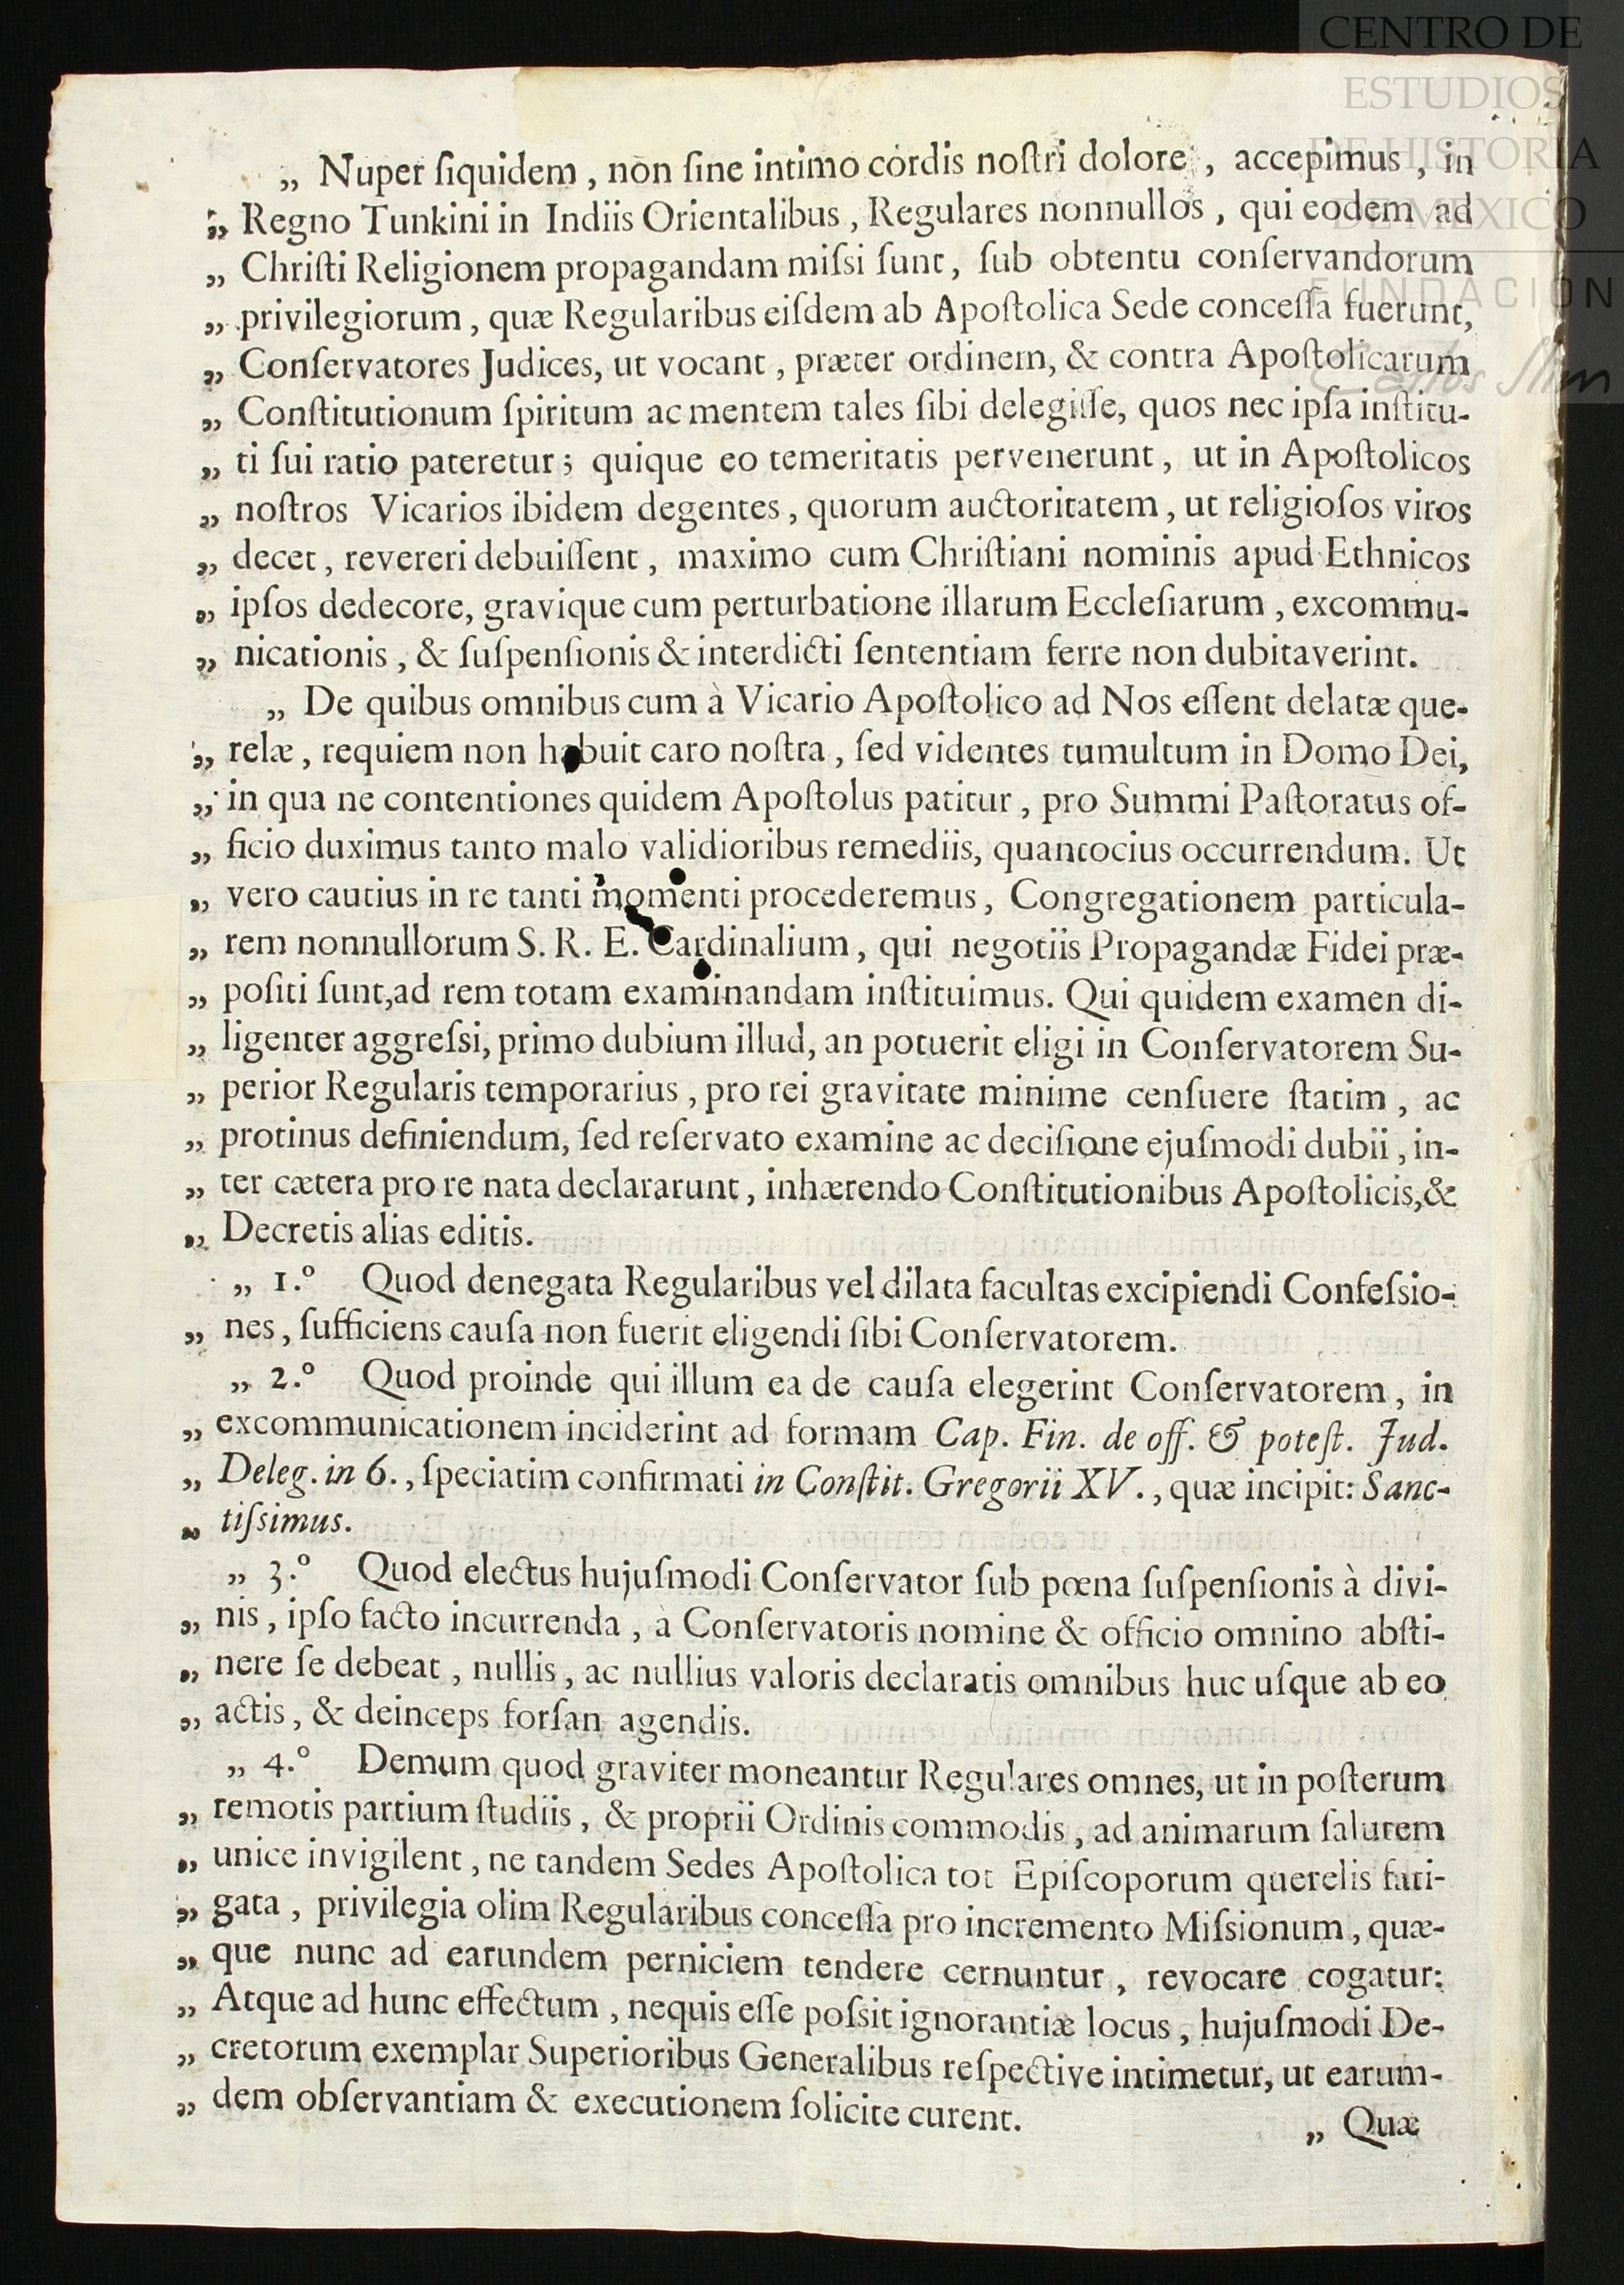 CENTRO DE
ESTUDIOS
DE HISTORIA
DE MÉXICO
FUNDACIÓN
Carlos Slim
„ Nuper ſiquidem , non ſine intimo cordis noſtri dolore , accepimus , in
„ Regno Tunkini in Indiis Orientalibus , Regulares nonnullos , qui eodem ad
„ Chriſti Religionem propagandam miſsi ſunt, ſub obtentu conſervandorum
„ privilegiorum , quæ Regularibus eiſdem ab Apoſtolica Sede conceſſa fuerunt,
„ Conſervatores Judices, ut vocant , præter ordinem, & contra Apoſtolicarum
„ Conſtitutionum ſpiritum ac mentem tales ſibi delegiſſe, quos nec ipſa inſtitu-
„ ti ſui ratio pateretur ; quique eo temeritatis pervenerunt , ut in Apoſtolicos
„ noſtros Vicarios ibidem degentes , quorum auctoritatem , ut religioſos viros
„ decet , revereri debuiſſent , maximo cum Chriſtiani nominis apud Ethnicos
„ ipſos dedecore, gravique cum perturbatione illarum Eccleſiarum , excommu-
„ nicationis , & ſuſpenſionis & interdicti ſententiam ferre non dubitaverint.
„ De quibus omnibus cum à Vicario Apoſtolico ad Nos eſſent delatæ que-
„ relæ , requiem non habuit caro noſtra , ſed videntes tumultum in Domo Dei,
„ in qua ne contentiones quidem Apoſtolus patitur , pro Summi Paſtoratus of-
„ ficio duximus tanto malo validioribus remediis, quantocius occurrendum. Ut
„ vero cautius in re tanti momenti procederemus , Congregationem particula-
„ rem nonnullorum S. R. E. Cardinalium , qui negotiis Propagandæ Fidei præ-
„ poſiti ſunt,ad rem totam examinandam inſtituimus. Qui quidem examen di-
„ ligenter aggreſsi, primo dubium illud, an potuerit eligi in Conſervatorem Su-
„ perior Regularis temporarius , pro rei gravitate minime cenſuere ſtatim , ac
„ protinus definiendum, ſed reſervato examine ac deciſione ejuſmodi dubii , in-
„ ter cætera pro re nata declararunt , inhærendo Conſtitutionibus Apoſtolicis,&
„ Decretis alias editis.
„ 1.º Quod denegata Regularibus vel dilata facultas excipiendi Confeſsio-
„ nes , ſufficiens cauſa non fuerit eligendi ſibi Conſervatorem.
„ 2.º Quod proinde qui illum ea de cauſa elegerint Conſervatorem , in
„ excommunicationem inciderint ad formam Cap. Fin. de off. & poteſt. Jud.
„ Deleg. in 6. , ſpeciatim confirmati in Conſtit. Gregorii XV. , quæ incipit: Sanc-
„ tiſsimus.
„ 3.º Quod electus hujuſmodi Conſervator ſub pœna ſuſpenſionis à divi-
„ nis , ipſo facto incurrenda , à Conſervatoris nomine & officio omnino abſti-
„ nere ſe debeat , nullis , ac nullius valoris declaratis omnibus huc uſque ab eo
„ actis , & deinceps forſan agendis.
„ 4.º Demum quod graviter moneantur Regulares omnes, ut in poſterum
„ remotis partium ſtudiis , & proprii Ordinis commodis , ad animarum ſalutem
„ unice invigilent , ne tandem Sedes Apoſtolica tot Epiſcoporum querelis fati-
„ gata , privilegia olim Regularibus conceſſa pro incremento Miſsionum , quæ-
„ que nunc ad earundem perniciem tendere cernuntur , revocare cogatur:
„ Atque ad hunc effectum , nequis eſſe poſsit ignorantiæ locus , hujuſmodi De-
„ cretorum exemplar Superioribus Generalibus reſpective intimetur, ut earum-
„ dem obſervantiam & executionem ſolicite curent.
„ Quæ